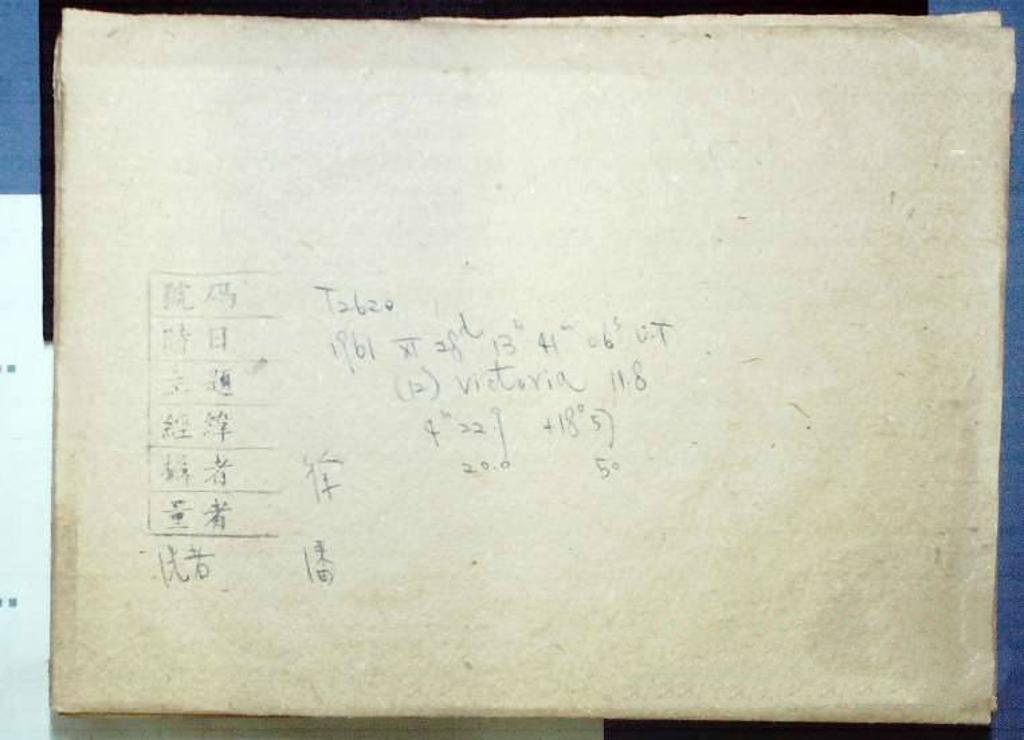 號碼 T2620
時日 1961 XI 28d 13h 41m 06s U.T
主題 (12) victoria 11.8
經緯 4h 22.9 +18° 57
20.0 50
攝者 徐
量者
洗者 潘